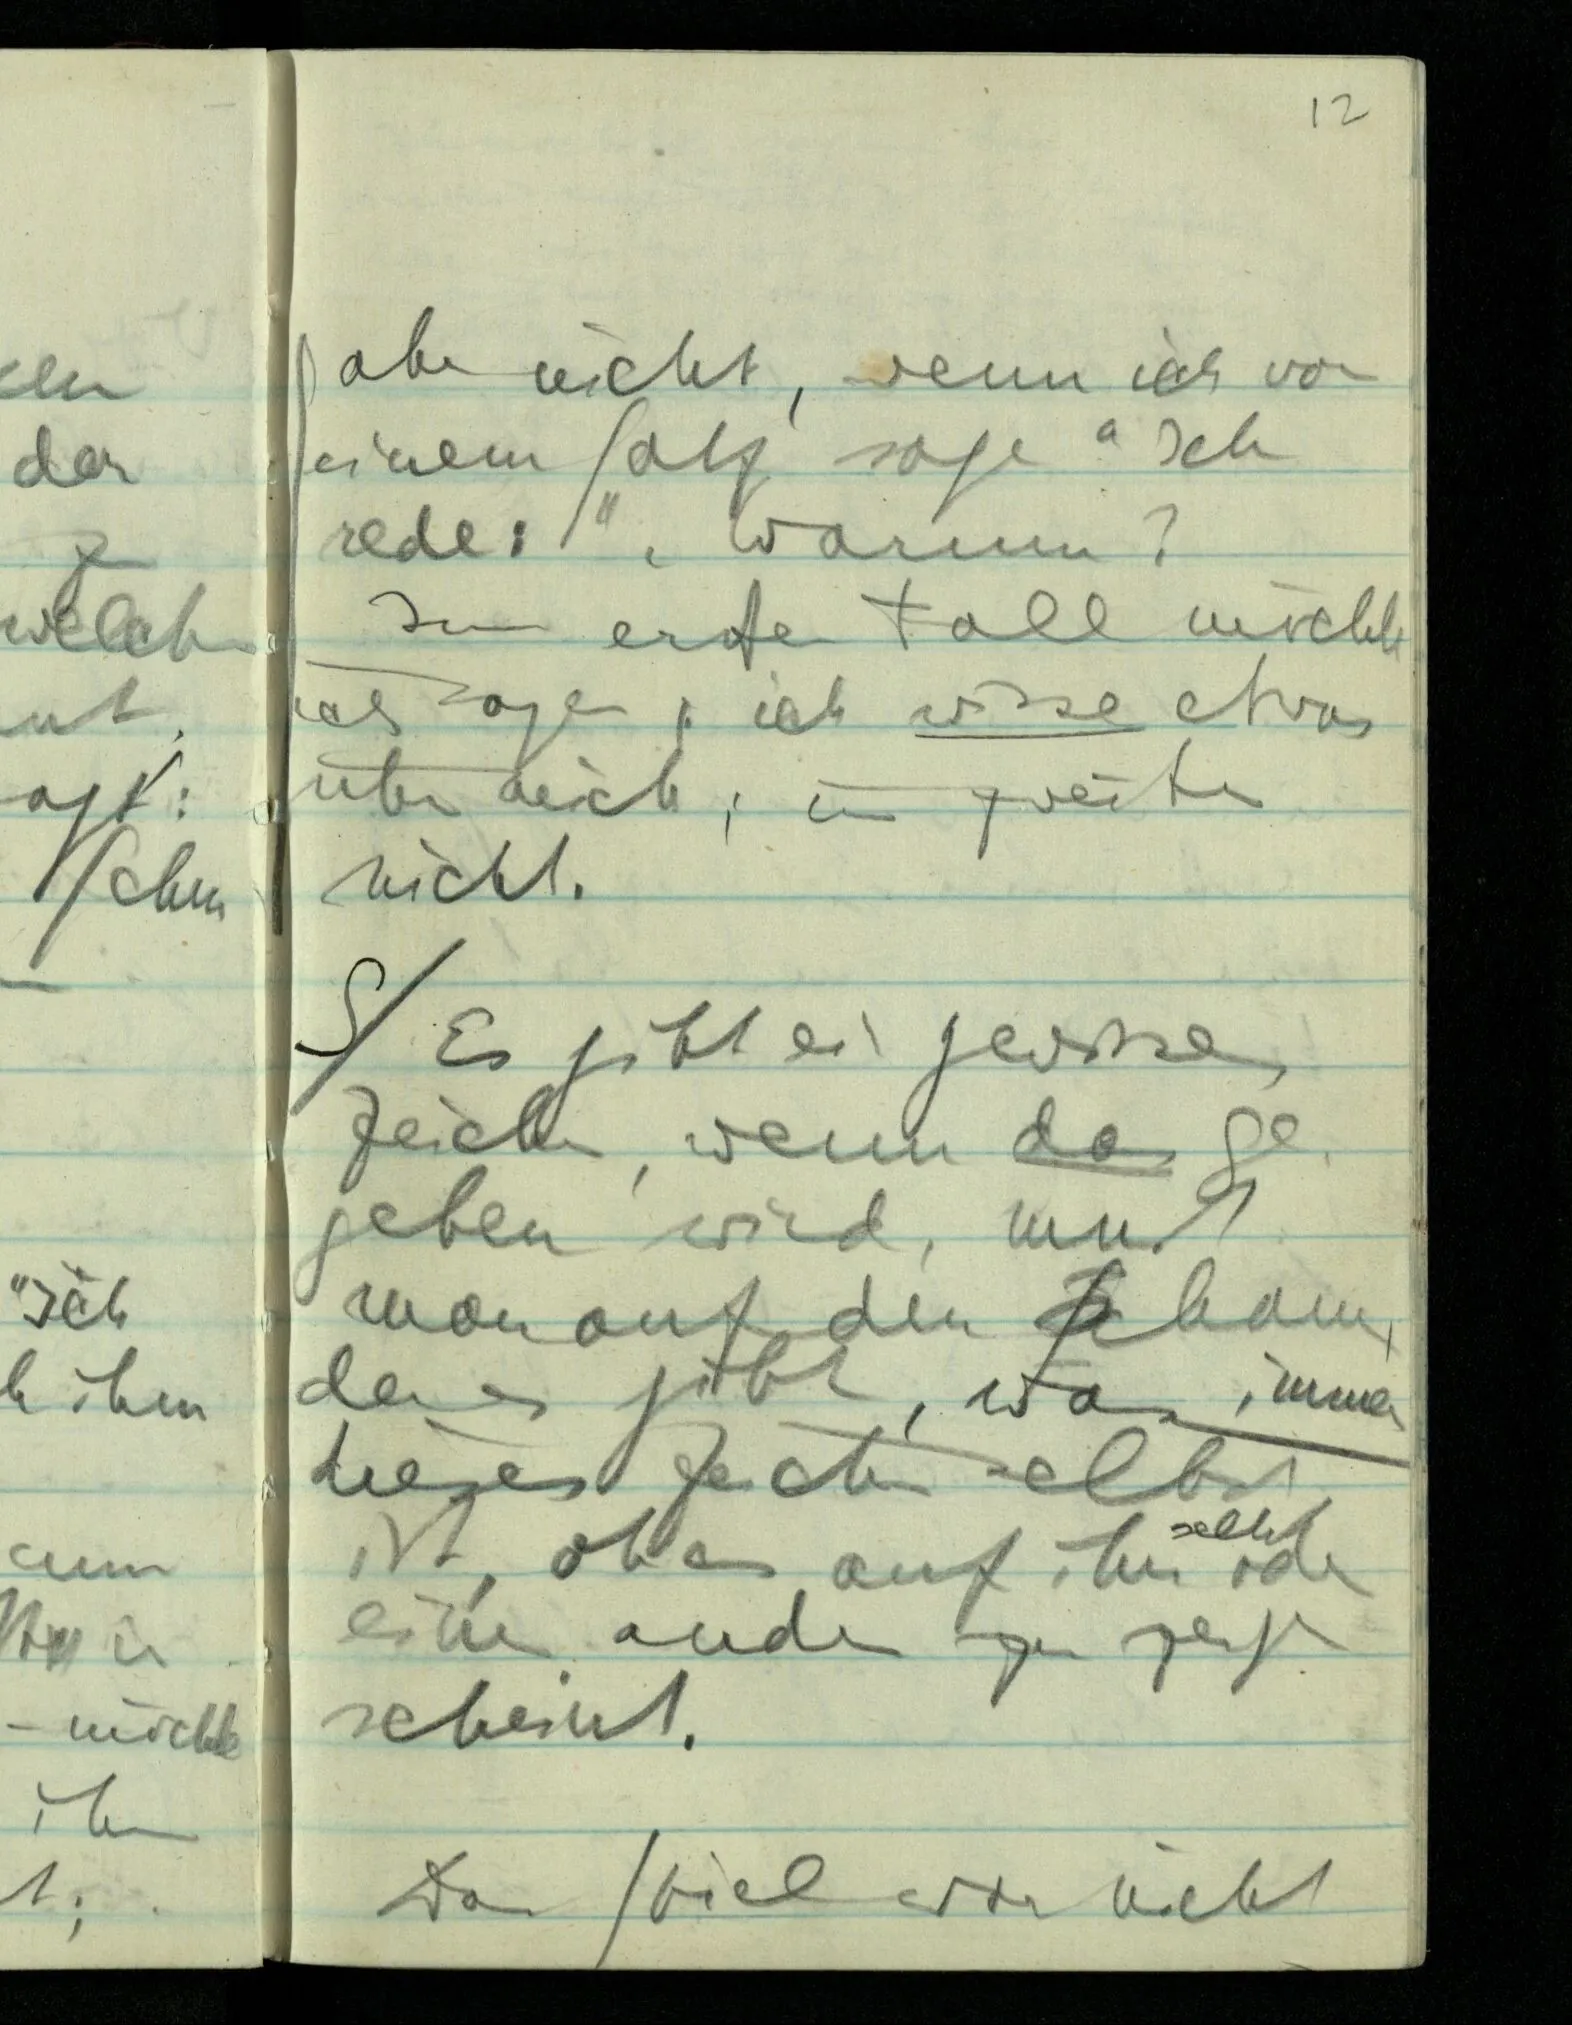 12
aber nicht, wenn ich von
einem Satz sage "Ich
rede: ", Warum?
Im ersten Fall möchte
ich sagen, ich wisse etwas
über mich; im zweiten
nicht.
S/ Es gibt ein gewisses
Zeichen, wenn das ge
geben wird, muß
man auf den schauen,
der es gibt, was immer
dieses Zeichen selbst
ist, ob es auf ihn selbst oder
einen andern zu zeigen
scheint.
Das Spiel wäre nicht
der
zu
welchen
sagt:
"Ich
ihm
- möchte
ihm